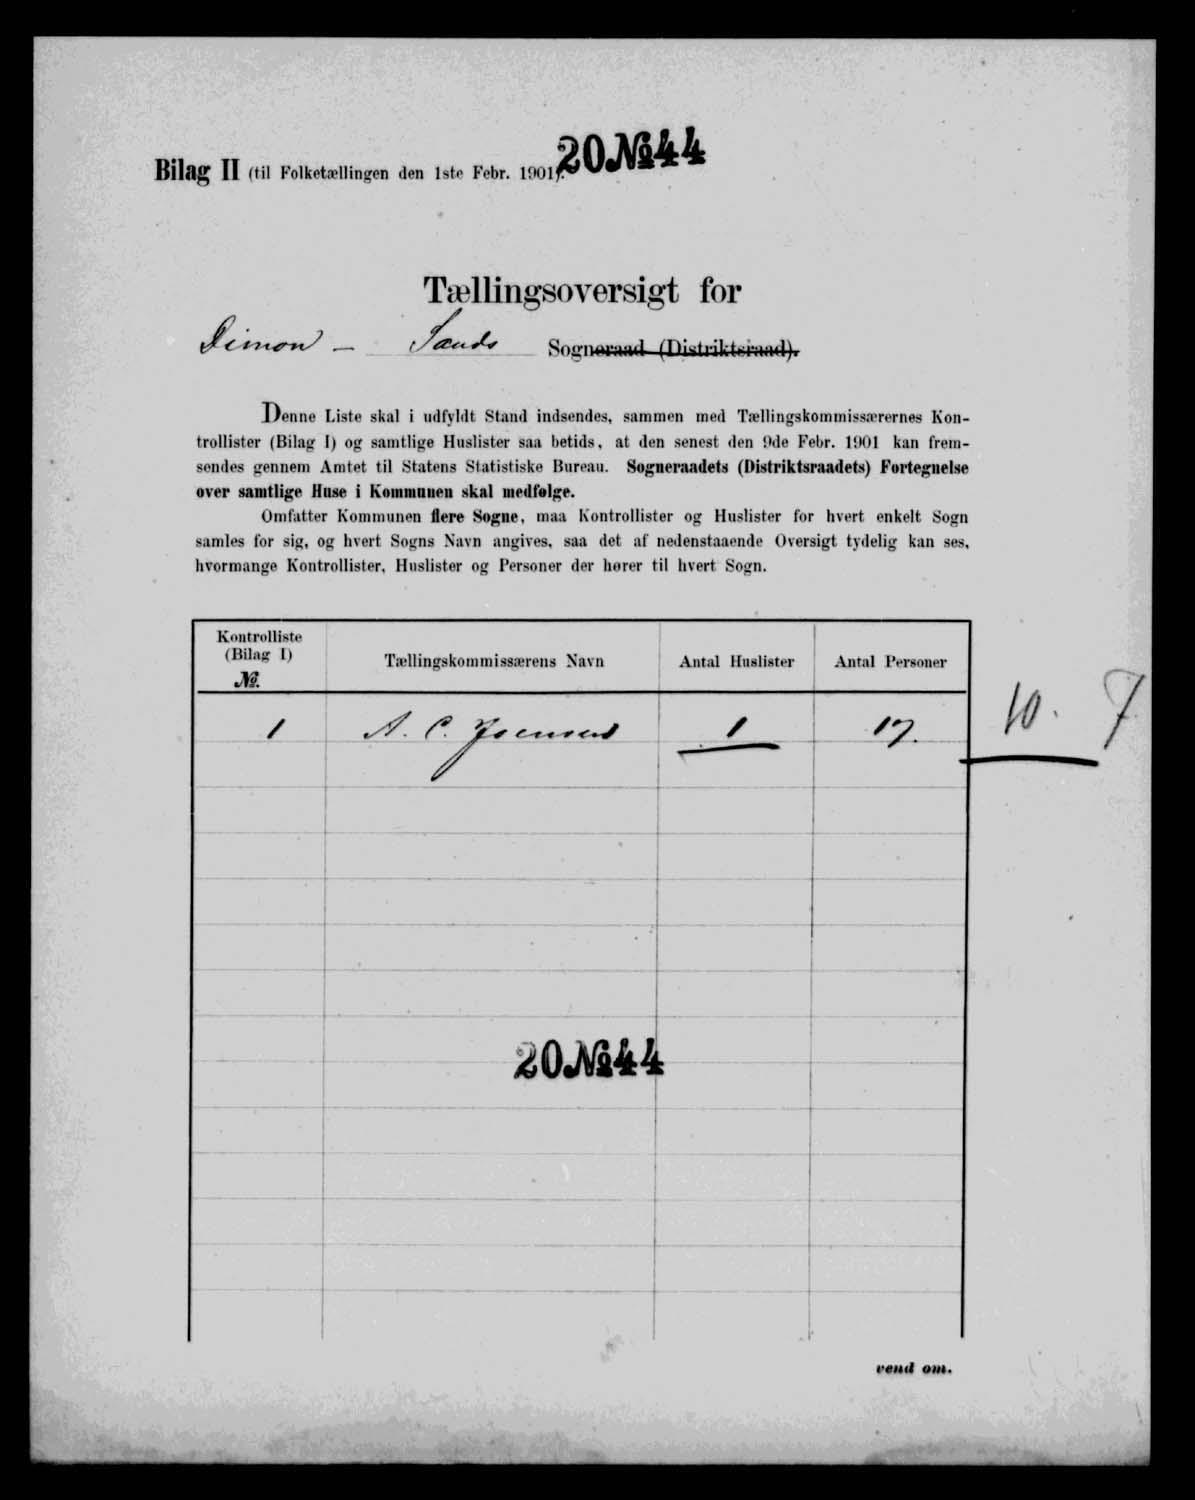 20 № 44
Bilag II (til Folketællingen den 1ste Febr. 1901).
Tællingsoversigt for
Dimon – Sands Sogneraad (Distriktsraad).
Denne Liste skal i udfyldt Stand indsendes, sammen med Tællingskommissærernes Kon-
trollister (Bilag I) og samtlige Huslister saa betids, at den senest den 9de Febr. 1901 kan frem-
sendes gennem Amtet til Statens Statistiske Bureau. Sogneraadets (Distriktsraadets) Fortegnelse
over samtlige Huse i Kommunen skal medfølge.
Omfatter Kommunen flere Sogne, maa Kontrollister og Huslister for hvert enkelt Sogn
samles for sig, og hvert Sogns Navn angives, saa det af nedenstaaende Oversigt tydelig kan ses,
hvormange Kontrollister, Huslister og Personer der hører til hvert Sogn.
Kontrolliste
(Bilag I)
№.
Tællingskommissærens Navn
Antal Huslister
Antal Personer
1 A. C. 1 17. 10. 7
20 № 44
vend om.